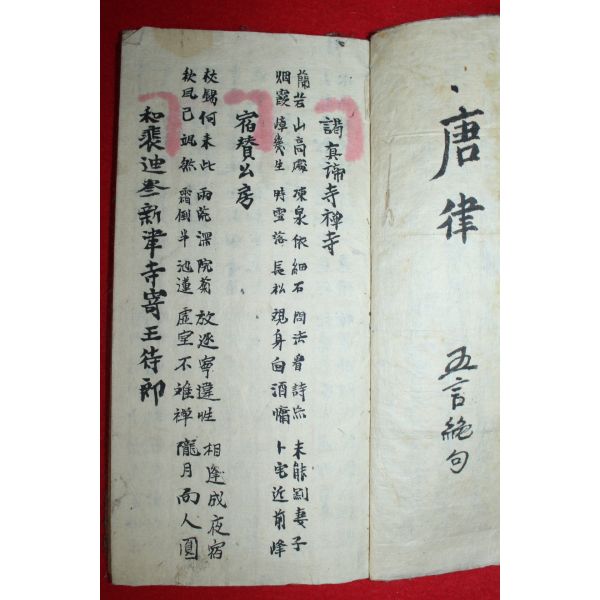 唐律
五言絶句
謁真諦寺禅寺
蘭若山高處 凍泉依細石 問法看詩忘 未能割妻子
烟霞嶂幾生 時雪落長松 視身向酒慵 卜宅近前峰
宿賛公房
杖錫何来此 雨荒深院菊 放逐寧違性 相逢成夜宿
秋风已颯然 霜倒半池蓮 虛空不離禅 隴月向人圓
和裴迪登新津寺寄王待郎